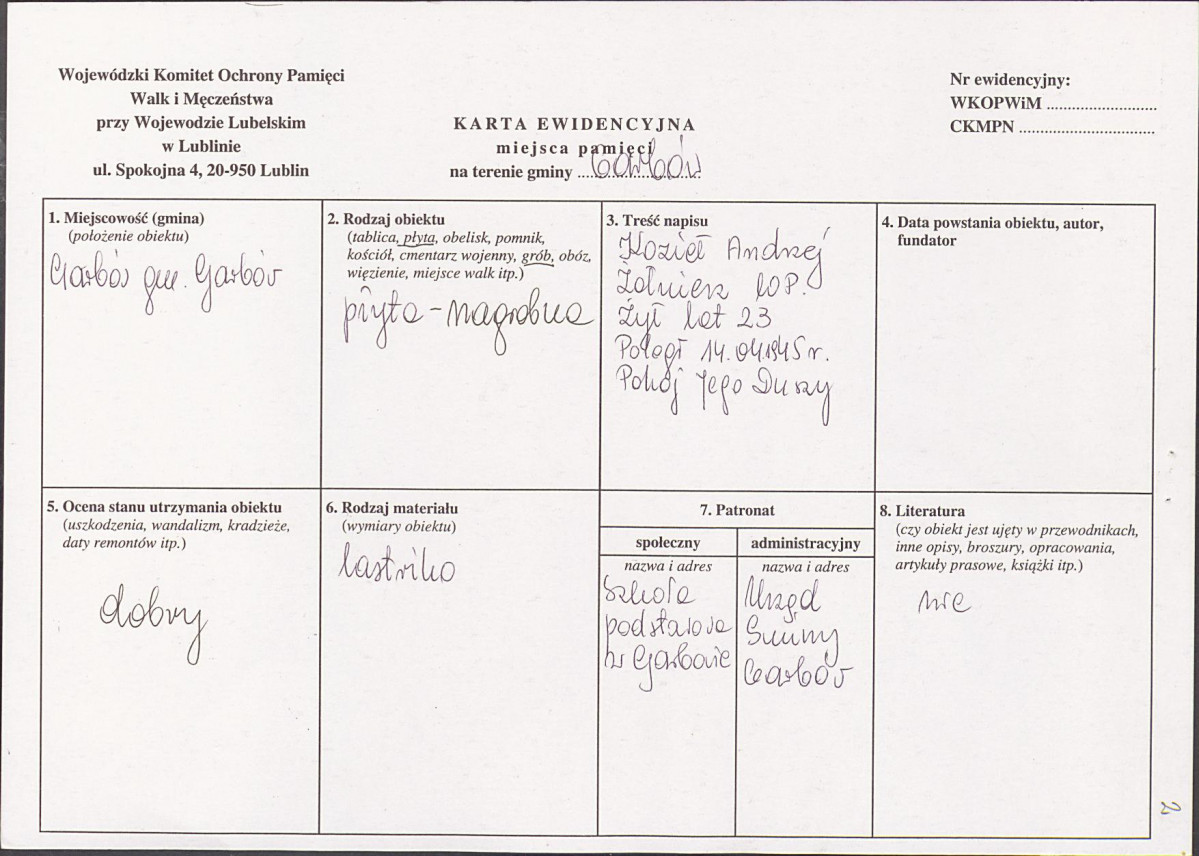 Wojewódzki Komitet Ochrony Pamięci
Walk i Męczeństwa
przy Wojewodzie Lubelskim
w Lublinie
ul. Spokojna 4, 20-950 Lublin
KARTA EWIDENCYJNA
miejsca pamięci
na terenie gminy ..... Garbów
Nr ewidencyjny:
WKOPWiM ...........................
CKMPN .................................
1. Miejscowość (gmina)
(położenie obiektu)
Garbów gm. Garbów
2. Rodzaj obiektu
(tablica, płyta, obelisk, pomnik,
kościół, cmentarz wojenny, grób, obóz,
więzienie, miejsce walk itp.)
płyta - nagrobna
3. Treść napisu
Kozieł Andrzej
Żołnierz
Żył lat 23
Poległ 14.04.1945 r.
Pokój Jego Duszy
4. Data powstania obiektu, autor,
fundator
5. Ocena stanu utrzymania obiektu
(uszkodzenia, wandalizm, kradzieże,
daty remontów itp.)
dobry
6. Rodzaj materiału
(wymiary obiektu)
lastriko
7. Patronat
społeczny
nazwa i adres
Szkoła
podstawowa
w Garbowie
administracyjny
nazwa i adres
Urząd
Gminy
Garbów
8. Literatura
(czy obiekt jest ujęty w przewodnikach,
inne opisy, broszury, opracowania,
artykuły prasowe, książki itp.)
nie
2